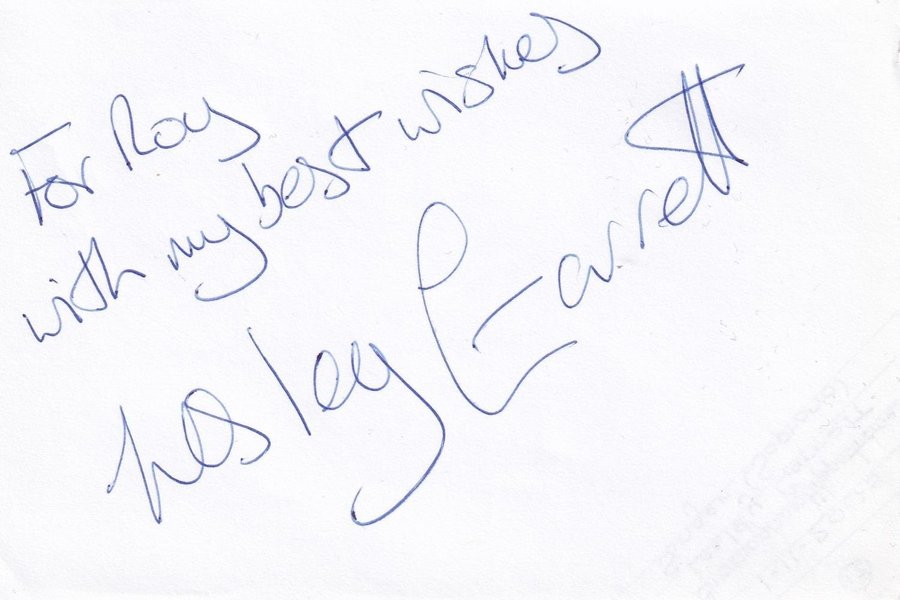 For Roy
with my best wishes
Lesley Garrett